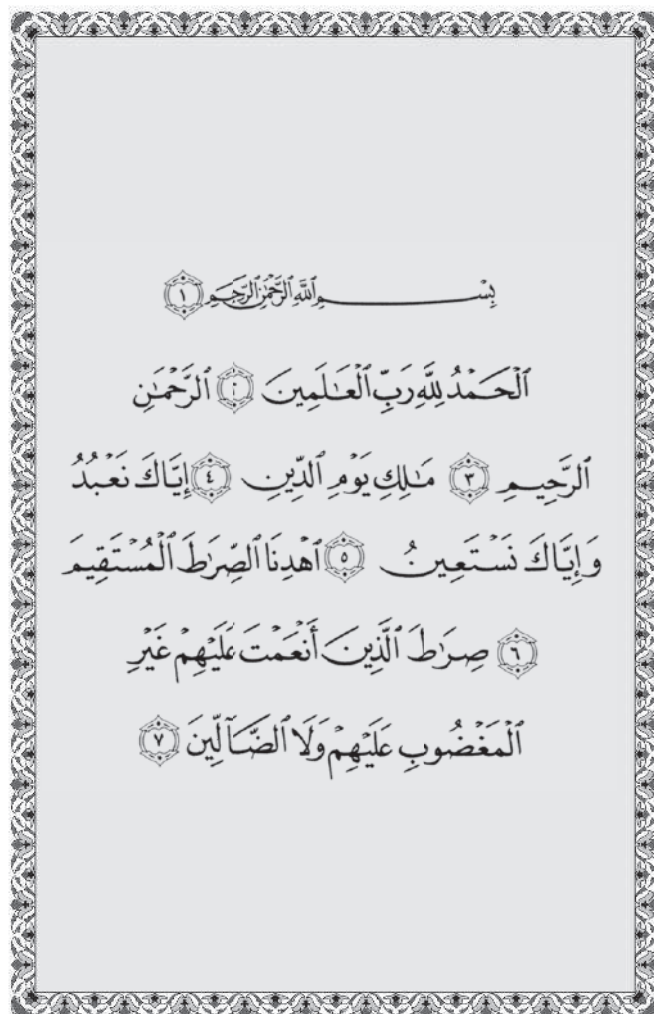 بِسْمِ ٱللَّهِ ٱلرَّحْمَٰنِ ٱلرَّحِيمِ ١
ٱلْحَمْدُ لِلَّهِ رَبِّ ٱلْعَٰلَمِينَ ٢ ٱلرَّحْمَٰنِ
ٱلرَّحِيمِ ٣ مَٰلِكِ يَوْمِ ٱلدِّينِ ٤ إِيَّاكَ نَعْبُدُ
وَإِيَّاكَ نَسْتَعِينُ ٥ ٱهْدِنَا ٱلصِّرَٰطَ ٱلْمُسْتَقِيمَ
٦ صِرَٰطَ ٱلَّذِينَ أَنْعَمْتَ عَلَيْهِمْ غَيْرِ
ٱلْمَغْضُوبِ عَلَيْهِمْ وَلَا ٱلضَّآلِّينَ ٧